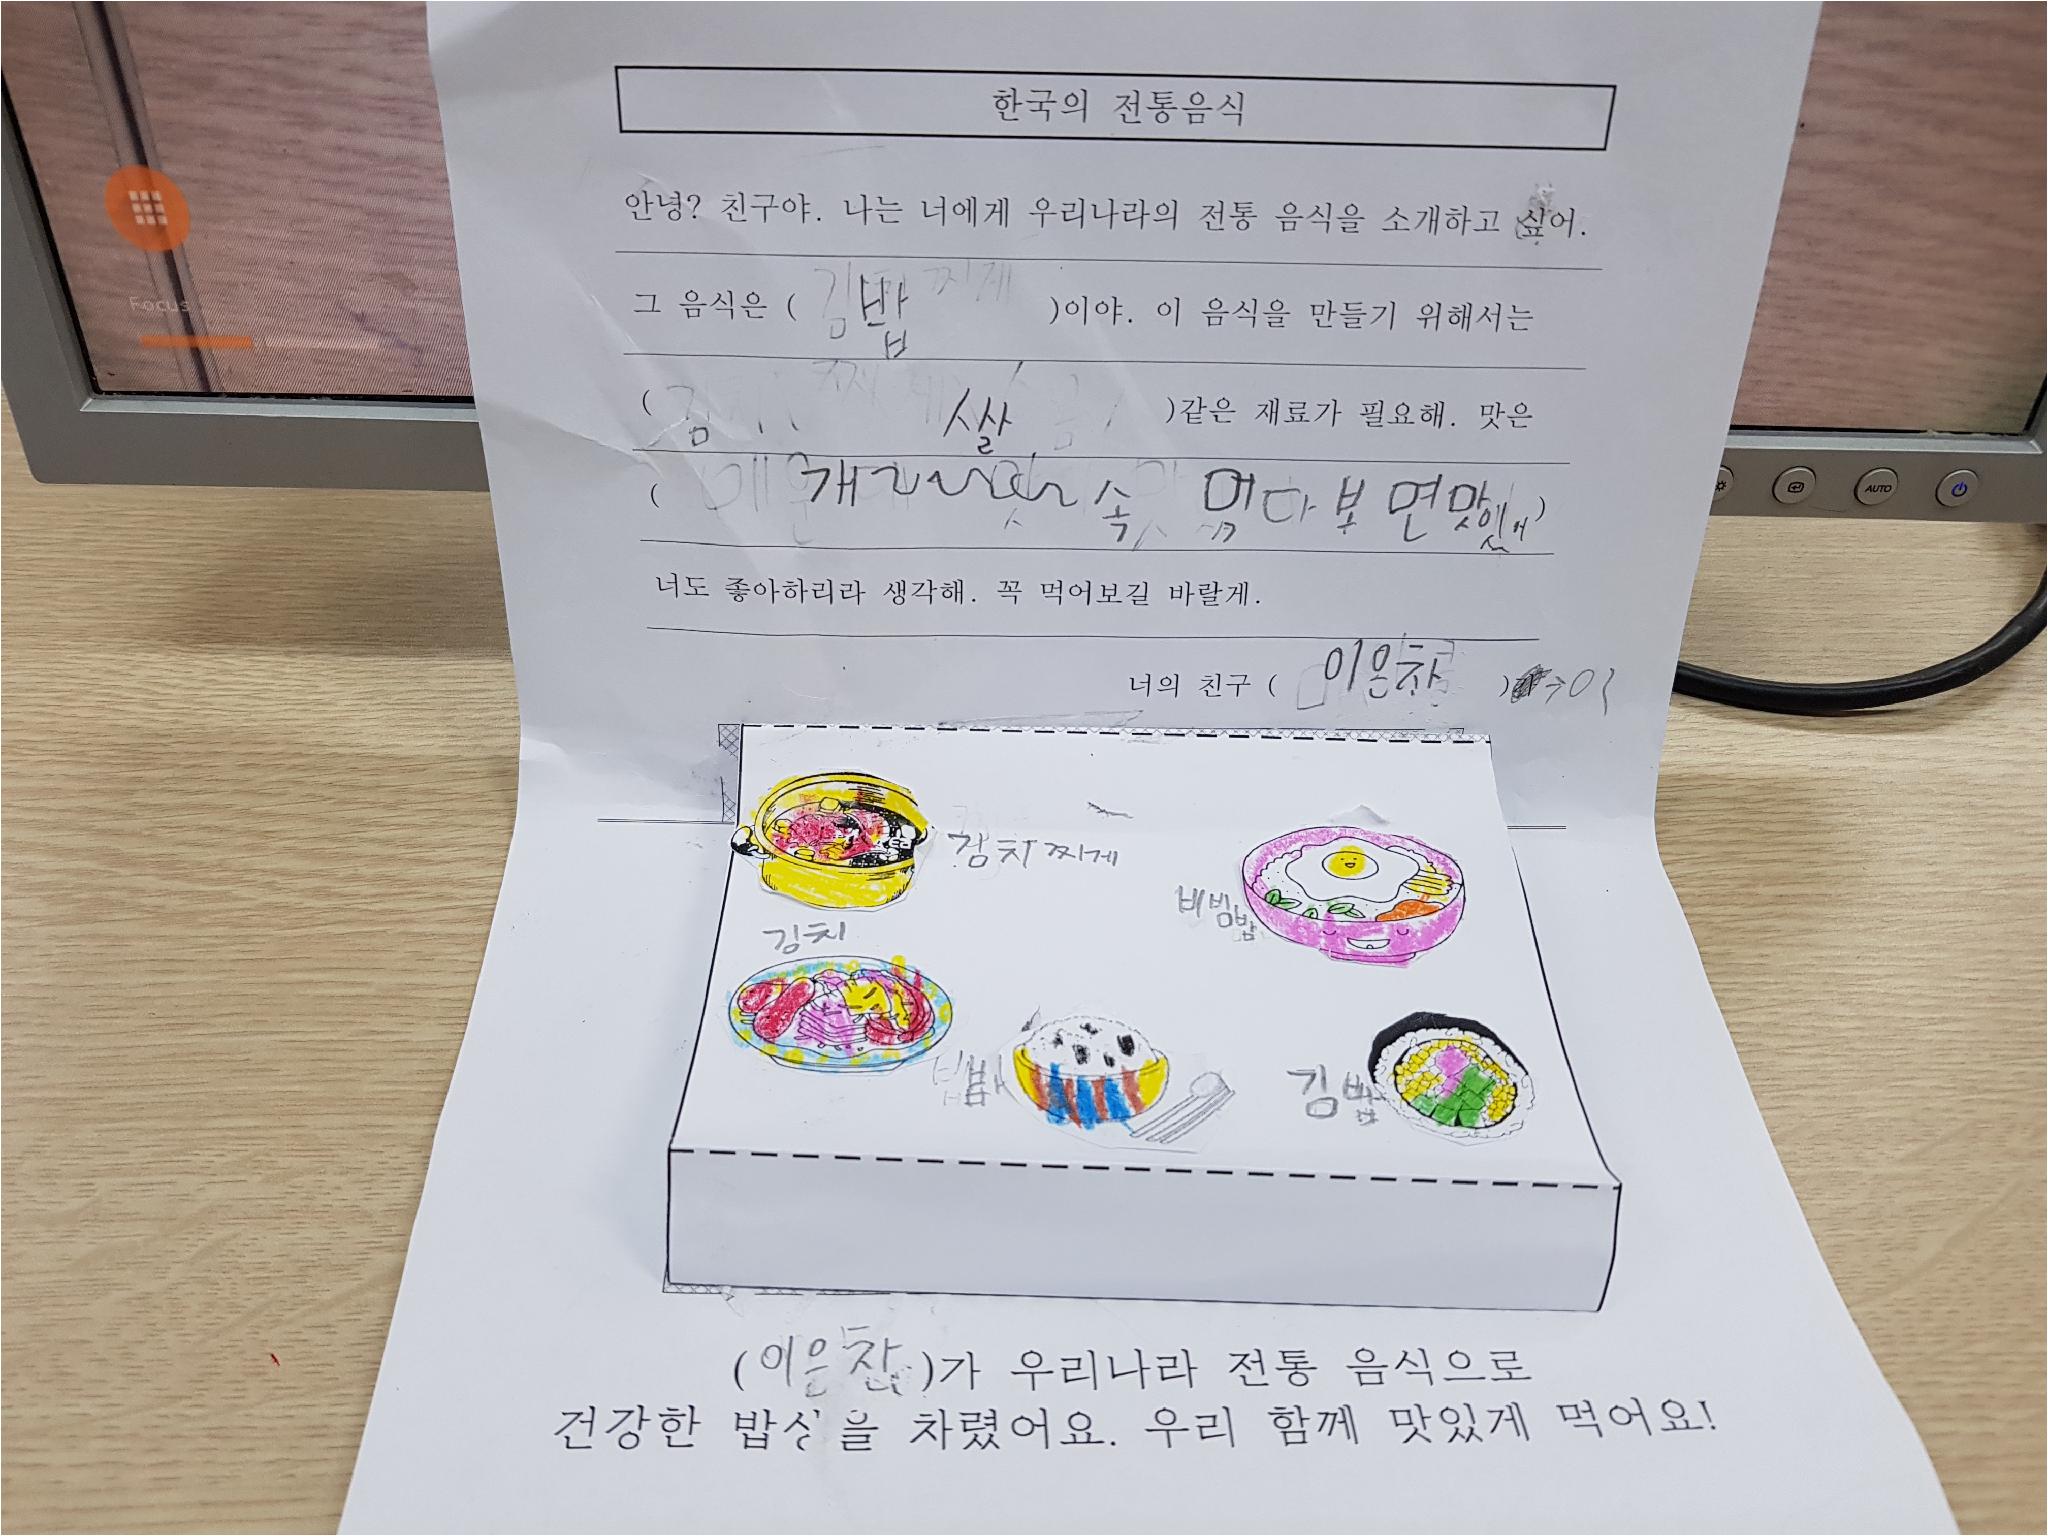 한국의 전통음식
안녕? 친구야. 나는 너에게 우리나라의 전통 음식을 소개하고 싶어.
그 음식은 ( 김밥 )이야. 이 음식을 만들기 위해서는
( 김 쌀 )같은 재료가 필요해. 맛은
( 속 먹다보면 맛있 )
너도 좋아하리라 생각해. 꼭 먹어보길 바랄게.
너의 친구 ( 이은찬 )
김치찌게
비빔밥
김치
밥
김밥
(이은찬)가 우리나라 전통 음식으로
건강한 밥상을 차렸어요. 우리 함께 맛있게 먹어요!
Focus
AUTO